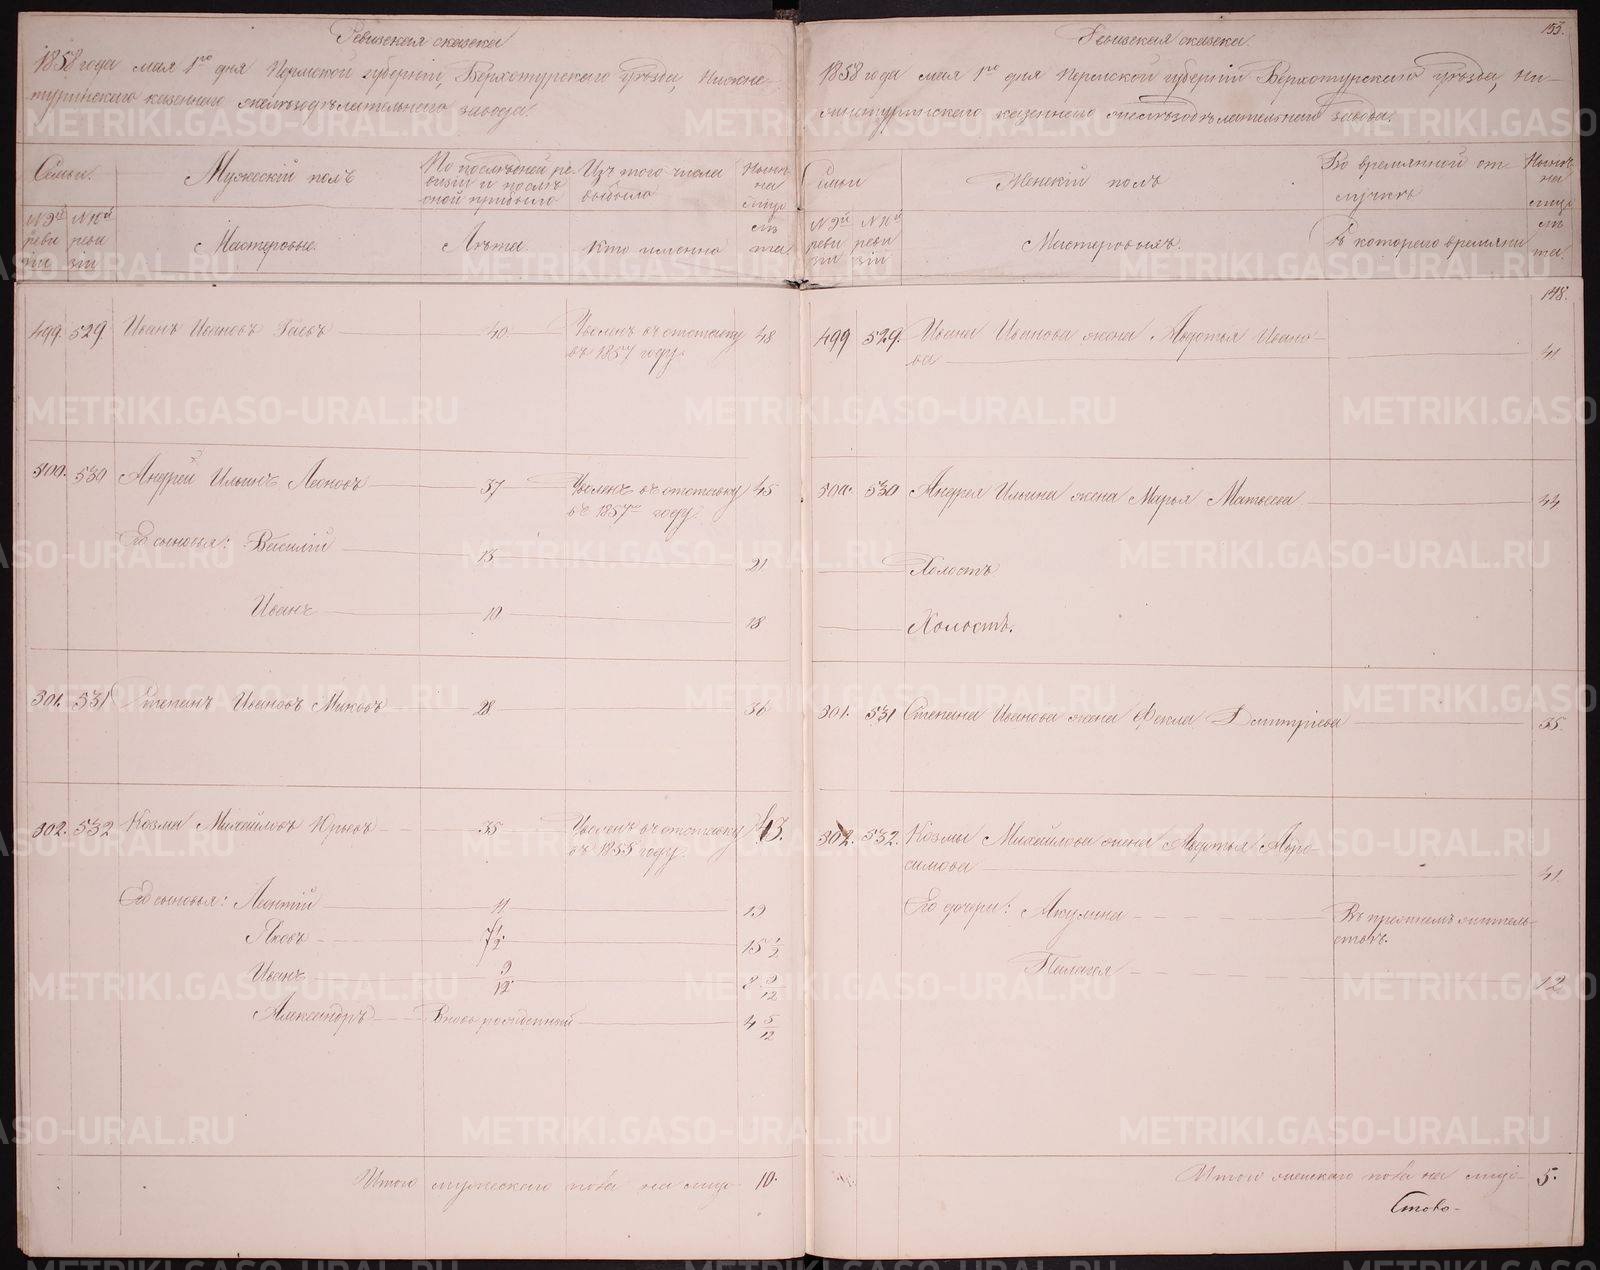 Ревизская сказка
1858 года мая 1го дня Пермской губернии, Верхотурского уѣзда, Нижне-
туринского казеннаго желѣзодѣлательнаго завода.
Семьи. Мужескій полъ По послѣдней ре- Изъ того числа Нынѣ
визіи и послѣ выбыло на
оной прибыло лицо
№ 9й № 10й Мастеровые. Лѣта. Кто именно лѣ
реви реви та.
зіи зіи
499. 529. Иванъ Ивановъ Гаевъ 40 Уволенъ въ отставку 48
въ 1857 году.
500. 530 Андрей Ильинъ Леоновъ 37 Уволенъ въ отставку 45
въ 1857м году.
Его сыновья: Василій 13 21
Иванъ 10 18
301. 531 Степанъ Ивановъ Миковъ 28 36
302. 532 Козма Михайловъ Юрьевъ 35 Уволенъ въ отставку 43.
въ 1855 году.
Его сыновья: Леонтій 11 19
Яковъ 7 1/2. 15 1/2
Иванъ 9/12. 8 9/12
Александръ Вновь рожденный 4 5/12
Итого мужескаго пола на лицо 10.
153.
Ревизская сказка.
1858 года мая 1го дня Пермской губерніи Верхотурского уѣзда, Ни-
жнетуринского казеннаго желѣзодѣлательнаго завода.
Семьи Женскій полъ Во временной от- Нынѣ
лучкѣ на
лицо
№ 9й № 10й Мастеровыхъ. Съ котораго времяни лѣ
реви реви та.
зіи зіи
148.
499 529. Ивана Иванова жена Авдотья Ивано-
ва 41
500. 530 Андрея Ильина жена Марья Матвеева 44
Холостъ
Холостъ.
301. 531 Степана Иванова жена Фекла Дмитріева 35
302. 532. Козмы Михайлова жена Авдотья Аѳро-
симова 41.
Его дочери: Акулина Въ прежнемъ житель-
ствѣ.
Пелагея 12
Итого женскаго пола на лицо 5.
Стово-
METRIKI.GASO-URAL.RU